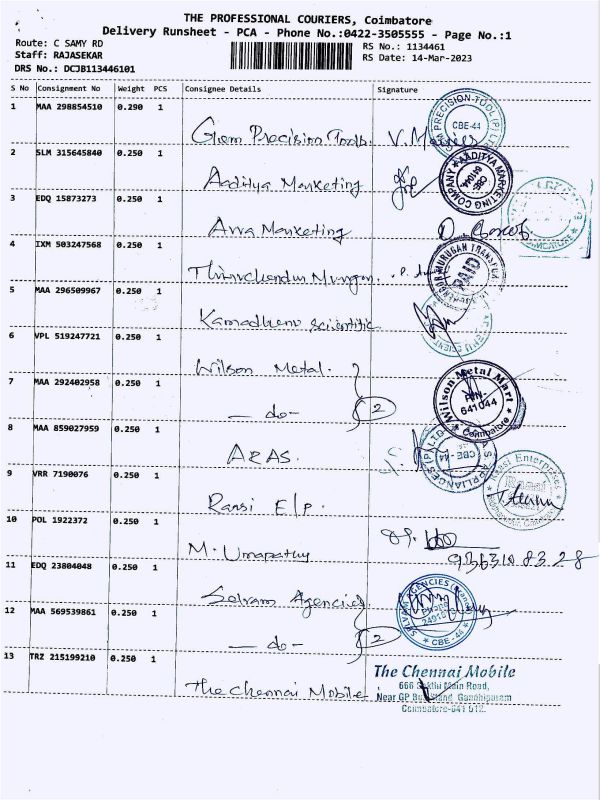 THE PROFESSIONAL COURIERS, Coimbatore
Delivery Runsheet - PCA - Phone No.:0422-3505555 - Page No.:1
Route: C SAMY RD
RS No.: 1134461
Staff: RAJASEKAR
RS Date: 14-Mar-2023
DRS No.: DCJB113446101
S No Consignment No Weight PCS Consignee Details Signature
1 MAA 298854510 0.290 1 Gem Precision Tools.
PRECISION-TOOL (P) LTD
CBE-44
2 SLM 315645840 0.250 1 Aaditya Marketing
AADITYA MARKETING COMPANY
3 EDQ 15873273 0.250 1 Arra Marketing
4 IXM 503247568 0.250 1 Thiruchendur Murugan.
PAID
5 MAA 296509967 0.250 1 Kamadhenu Scientific
6 VPL 519247721 0.250 1 Wilson Metal.
7 MAA 292402958 0.250 1 — do — 2
Wilson Metal Mart
PIN-
641044
Coimbatore
8 MAA 859027959 0.250 1 ARAS.
APPLIANCES (P) LTD
CBE-44
9 VRR 7190076 0.250 1 Ransi E/P.
Enterprises
10 POL 1922372 0.250 1 M. Umapathy
11 EDQ 23804048 0.250 1 Selvam Agencies
SELVAM AGENCIES
CBE-44
12 MAA 569539861 0.250 1 — do — 2
13 TRZ 215199210 0.250 1 The Chennai Mobile
The Chennai Mobile
666 Sakthi Main Road,
Near GP Bus Stand Gandhipuram
Coimbatore-641 012.